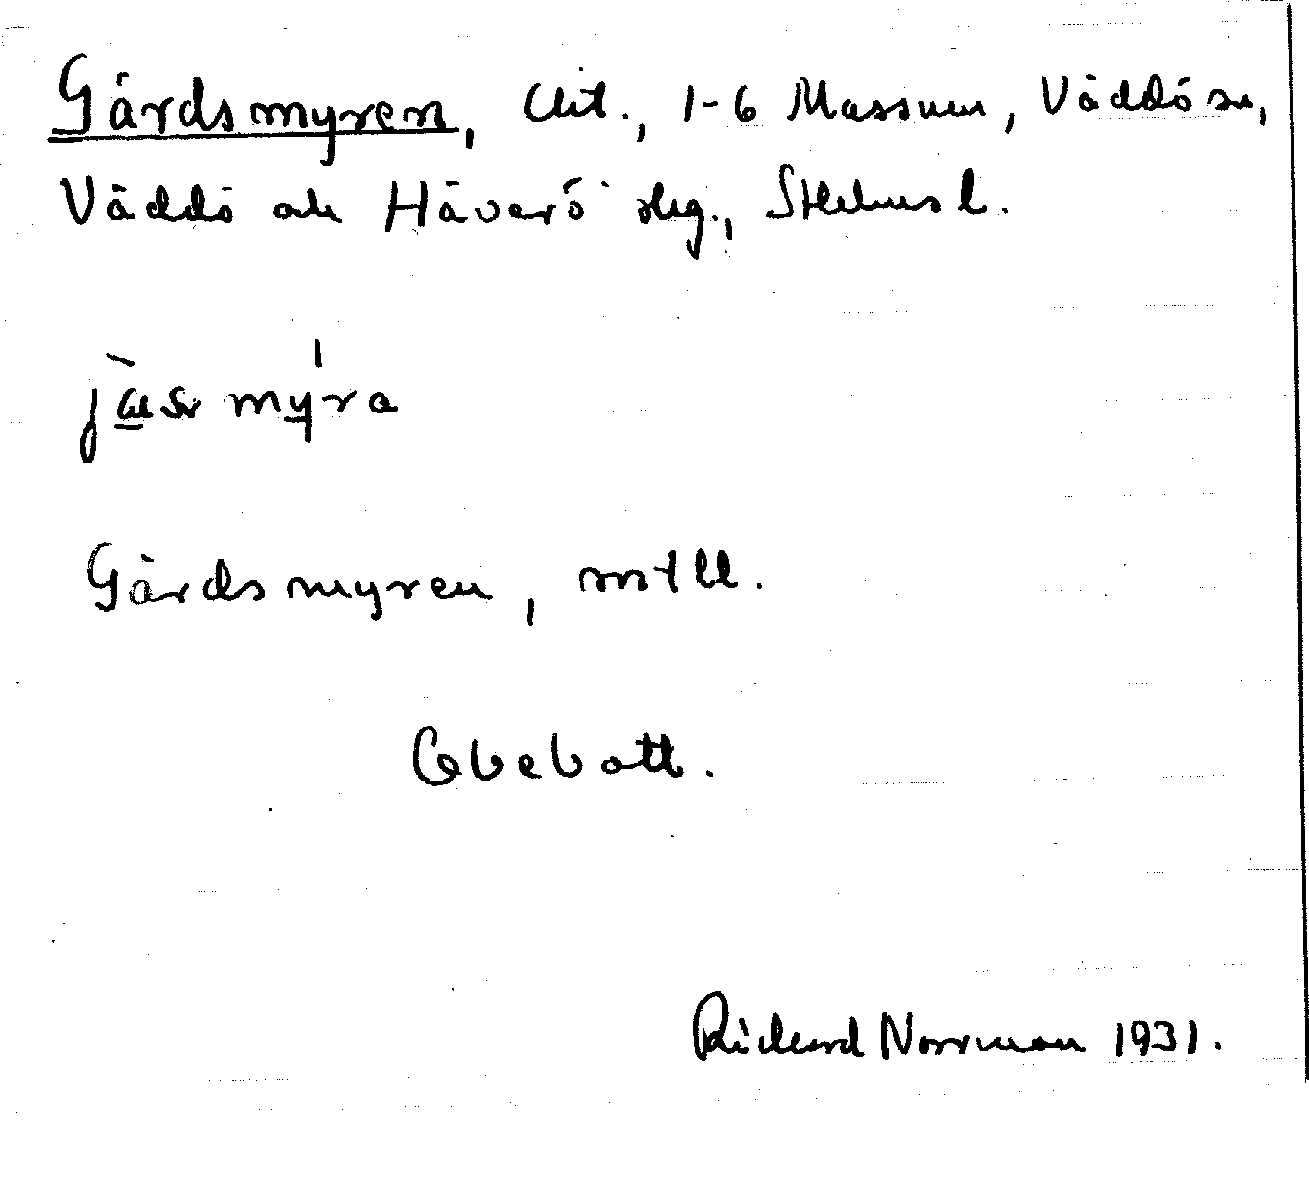 Gärdsmyren, Utt., 1-6 Massum, Väddö sn,
Väddö och Häverö skg., Sthlms l.
Gärdsmyren, smtll.
Obebott.
Richard Norrman 1931.